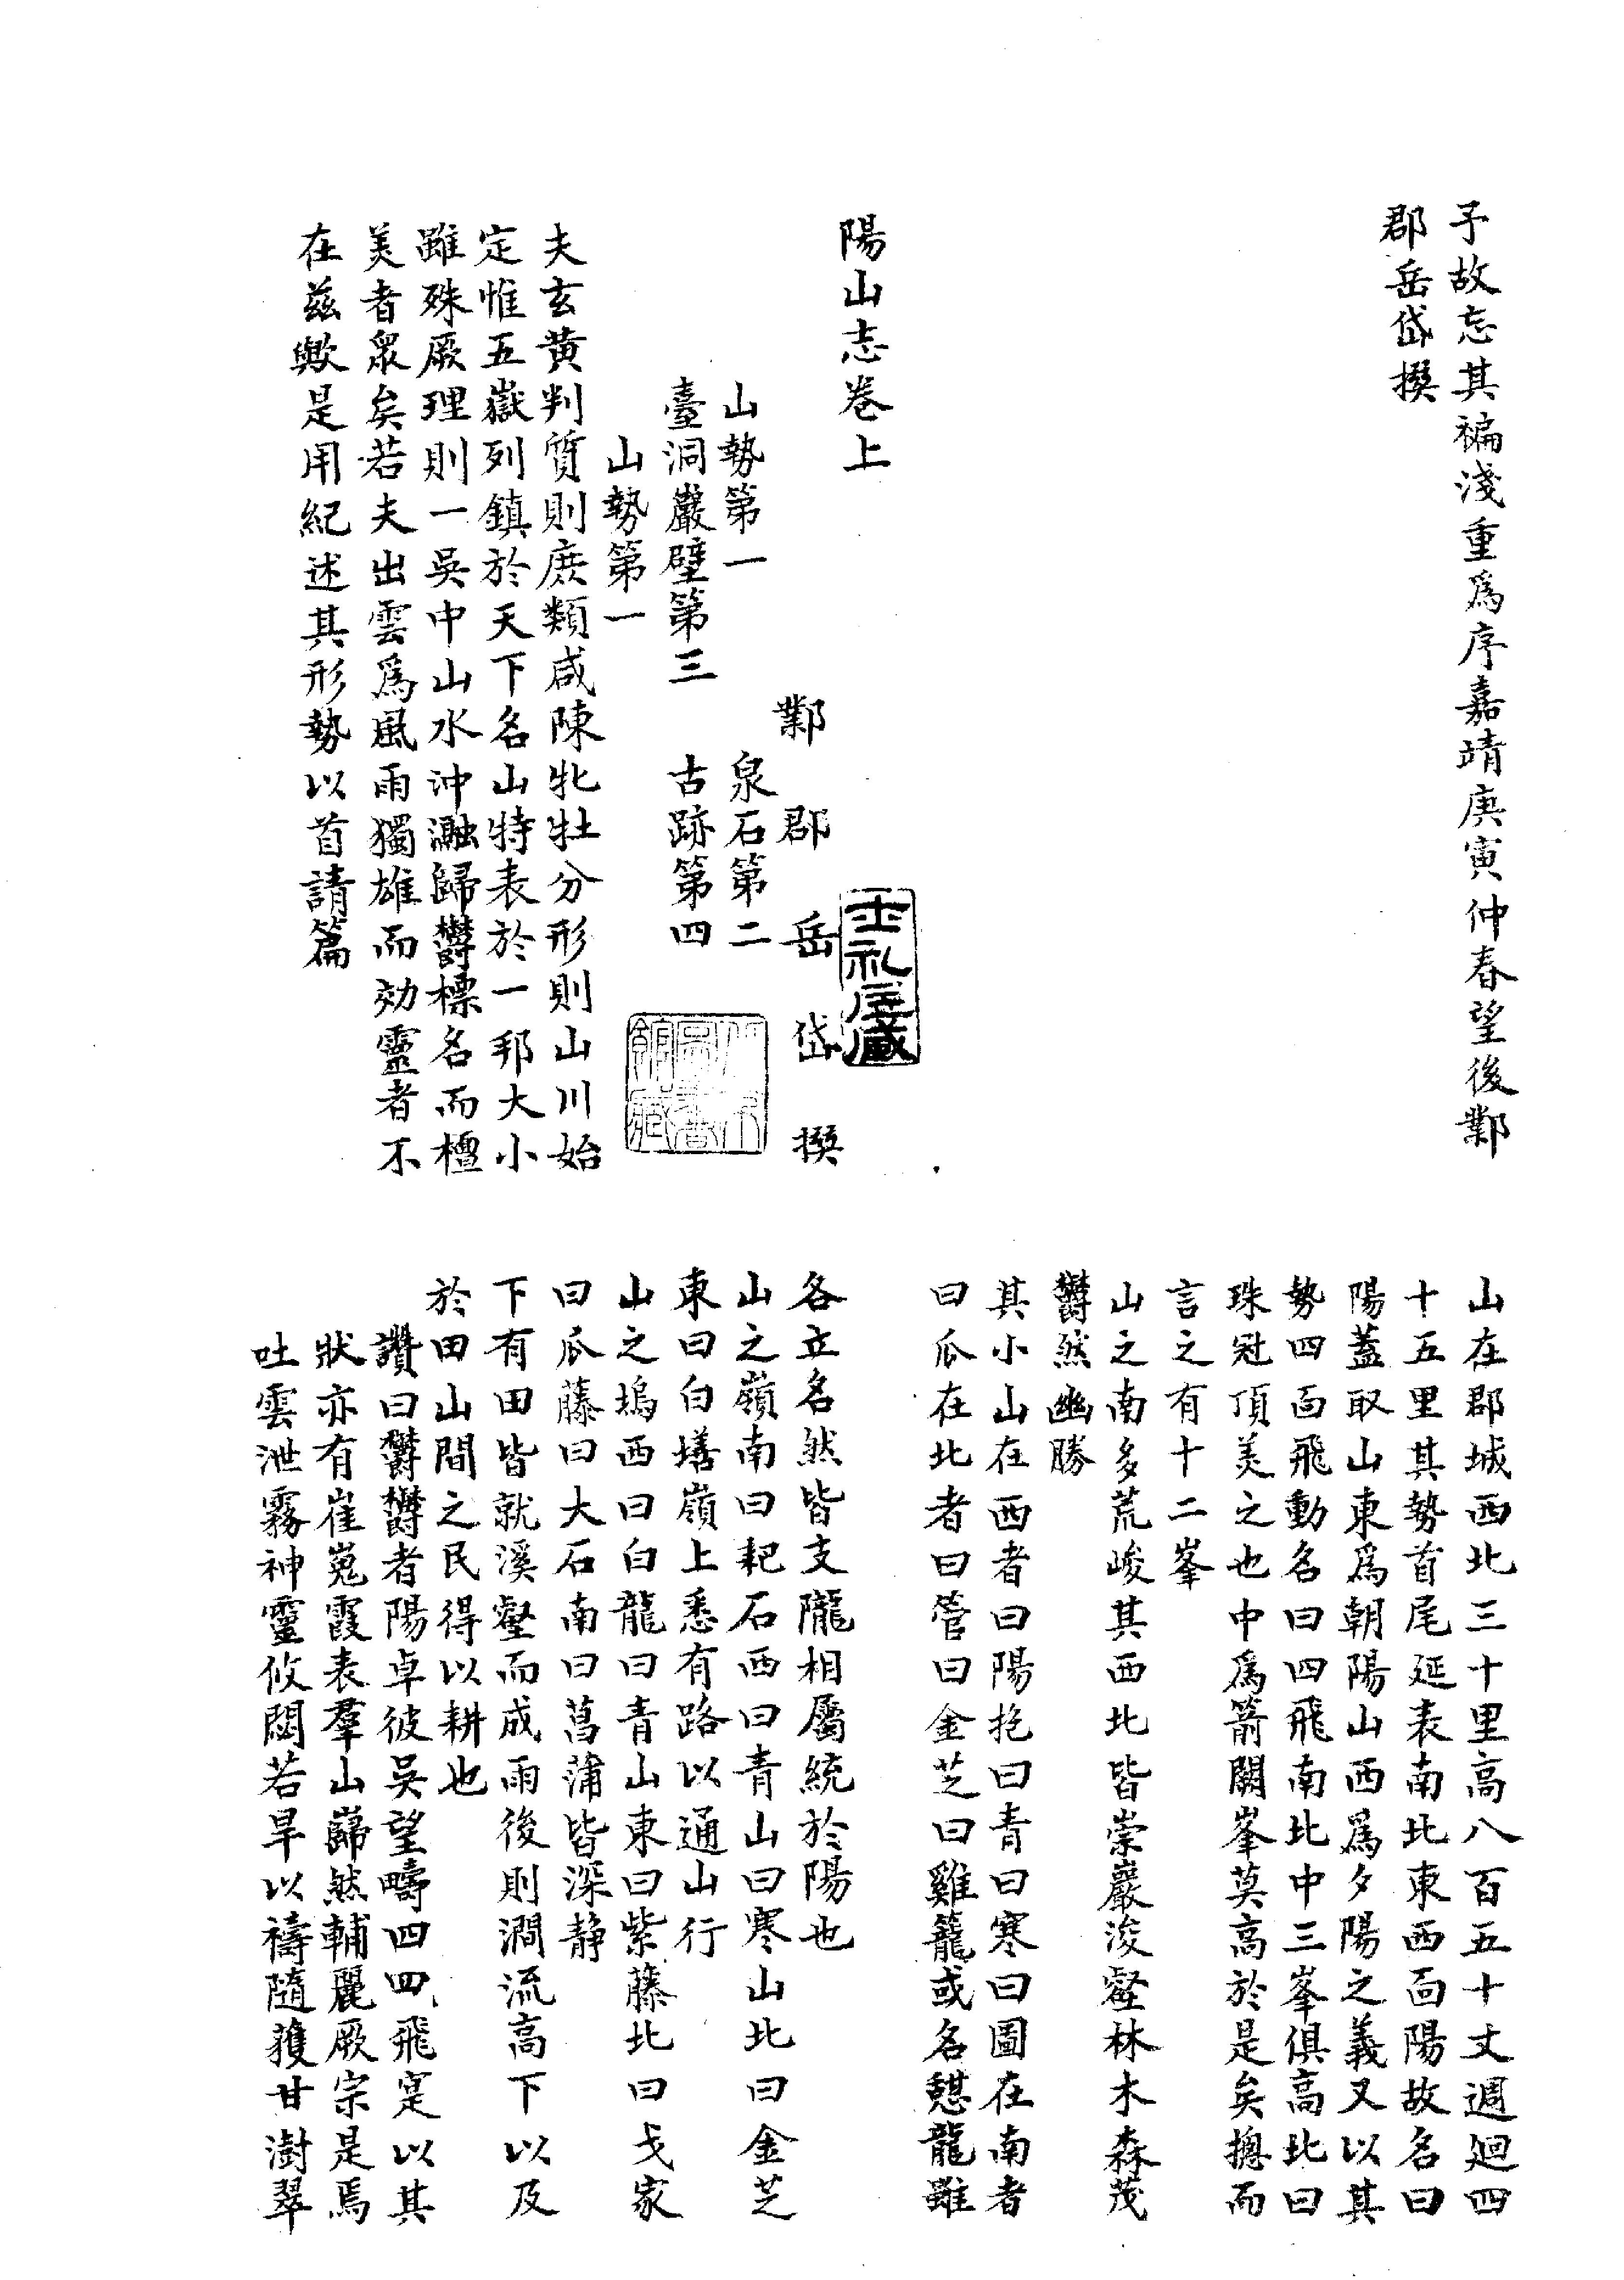 子故忘其褊淺重爲序嘉靖庚寅仲春望後鄴
郡岳岱撰
陽山志卷上
鄴郡岳岱撰
山勢第一　泉石第二
臺洞巖壁第三　古跡第四
山勢第一
夫玄黄判質則庶類咸陳牝牡分形則山川始
定惟五嶽列鎮於天下名山特表於一邦大小
雖殊厥理則一吳中山水沖瀜歸欝標名而檀
美者衆矣若夫出雲爲風雨獨雄而効靈者不
在兹歟是用紀述其形勢以首請篇
士礼居藏
山在郡城西北三十里高八百五十丈週廻四
十五里其勢首尾延表南北東西面陽故名曰
陽蓋取山東爲朝陽山西爲夕陽之義又以其
勢四面飛動名曰四飛南北中三峯俱高北曰
珠冠頂美之也中爲箭闕峯莫高於是矣揔而
言之有十二峯
山之南多荒峻其西北皆崇巖浚壑林木森茂
欝然幽勝
其小山在西者曰陽抱曰青曰寒曰圖在南者
曰瓜在北者曰管曰金芝曰雞籠或名憇龍雖
各立名然皆支隴相屬統於陽也
山之嶺南曰耙石西曰青山曰寒山北曰金芝
東曰白墡嶺上悉有路以通山行
山之塢西曰白龍曰青山東曰紫藤北曰戈家
曰瓜藤曰大石南曰菖蒲皆深静
下有田皆就溪壑而成雨後則澗流高下以及
於田山間之民得以耕也
讚曰欝欝者陽卓彼吳望疇四四飛寔以其
狀亦有崔嵬霞表羣山巋然輔麗厥宗是焉
吐雲泄霧神靈攸閟若旱以禱隨獲甘澍翠